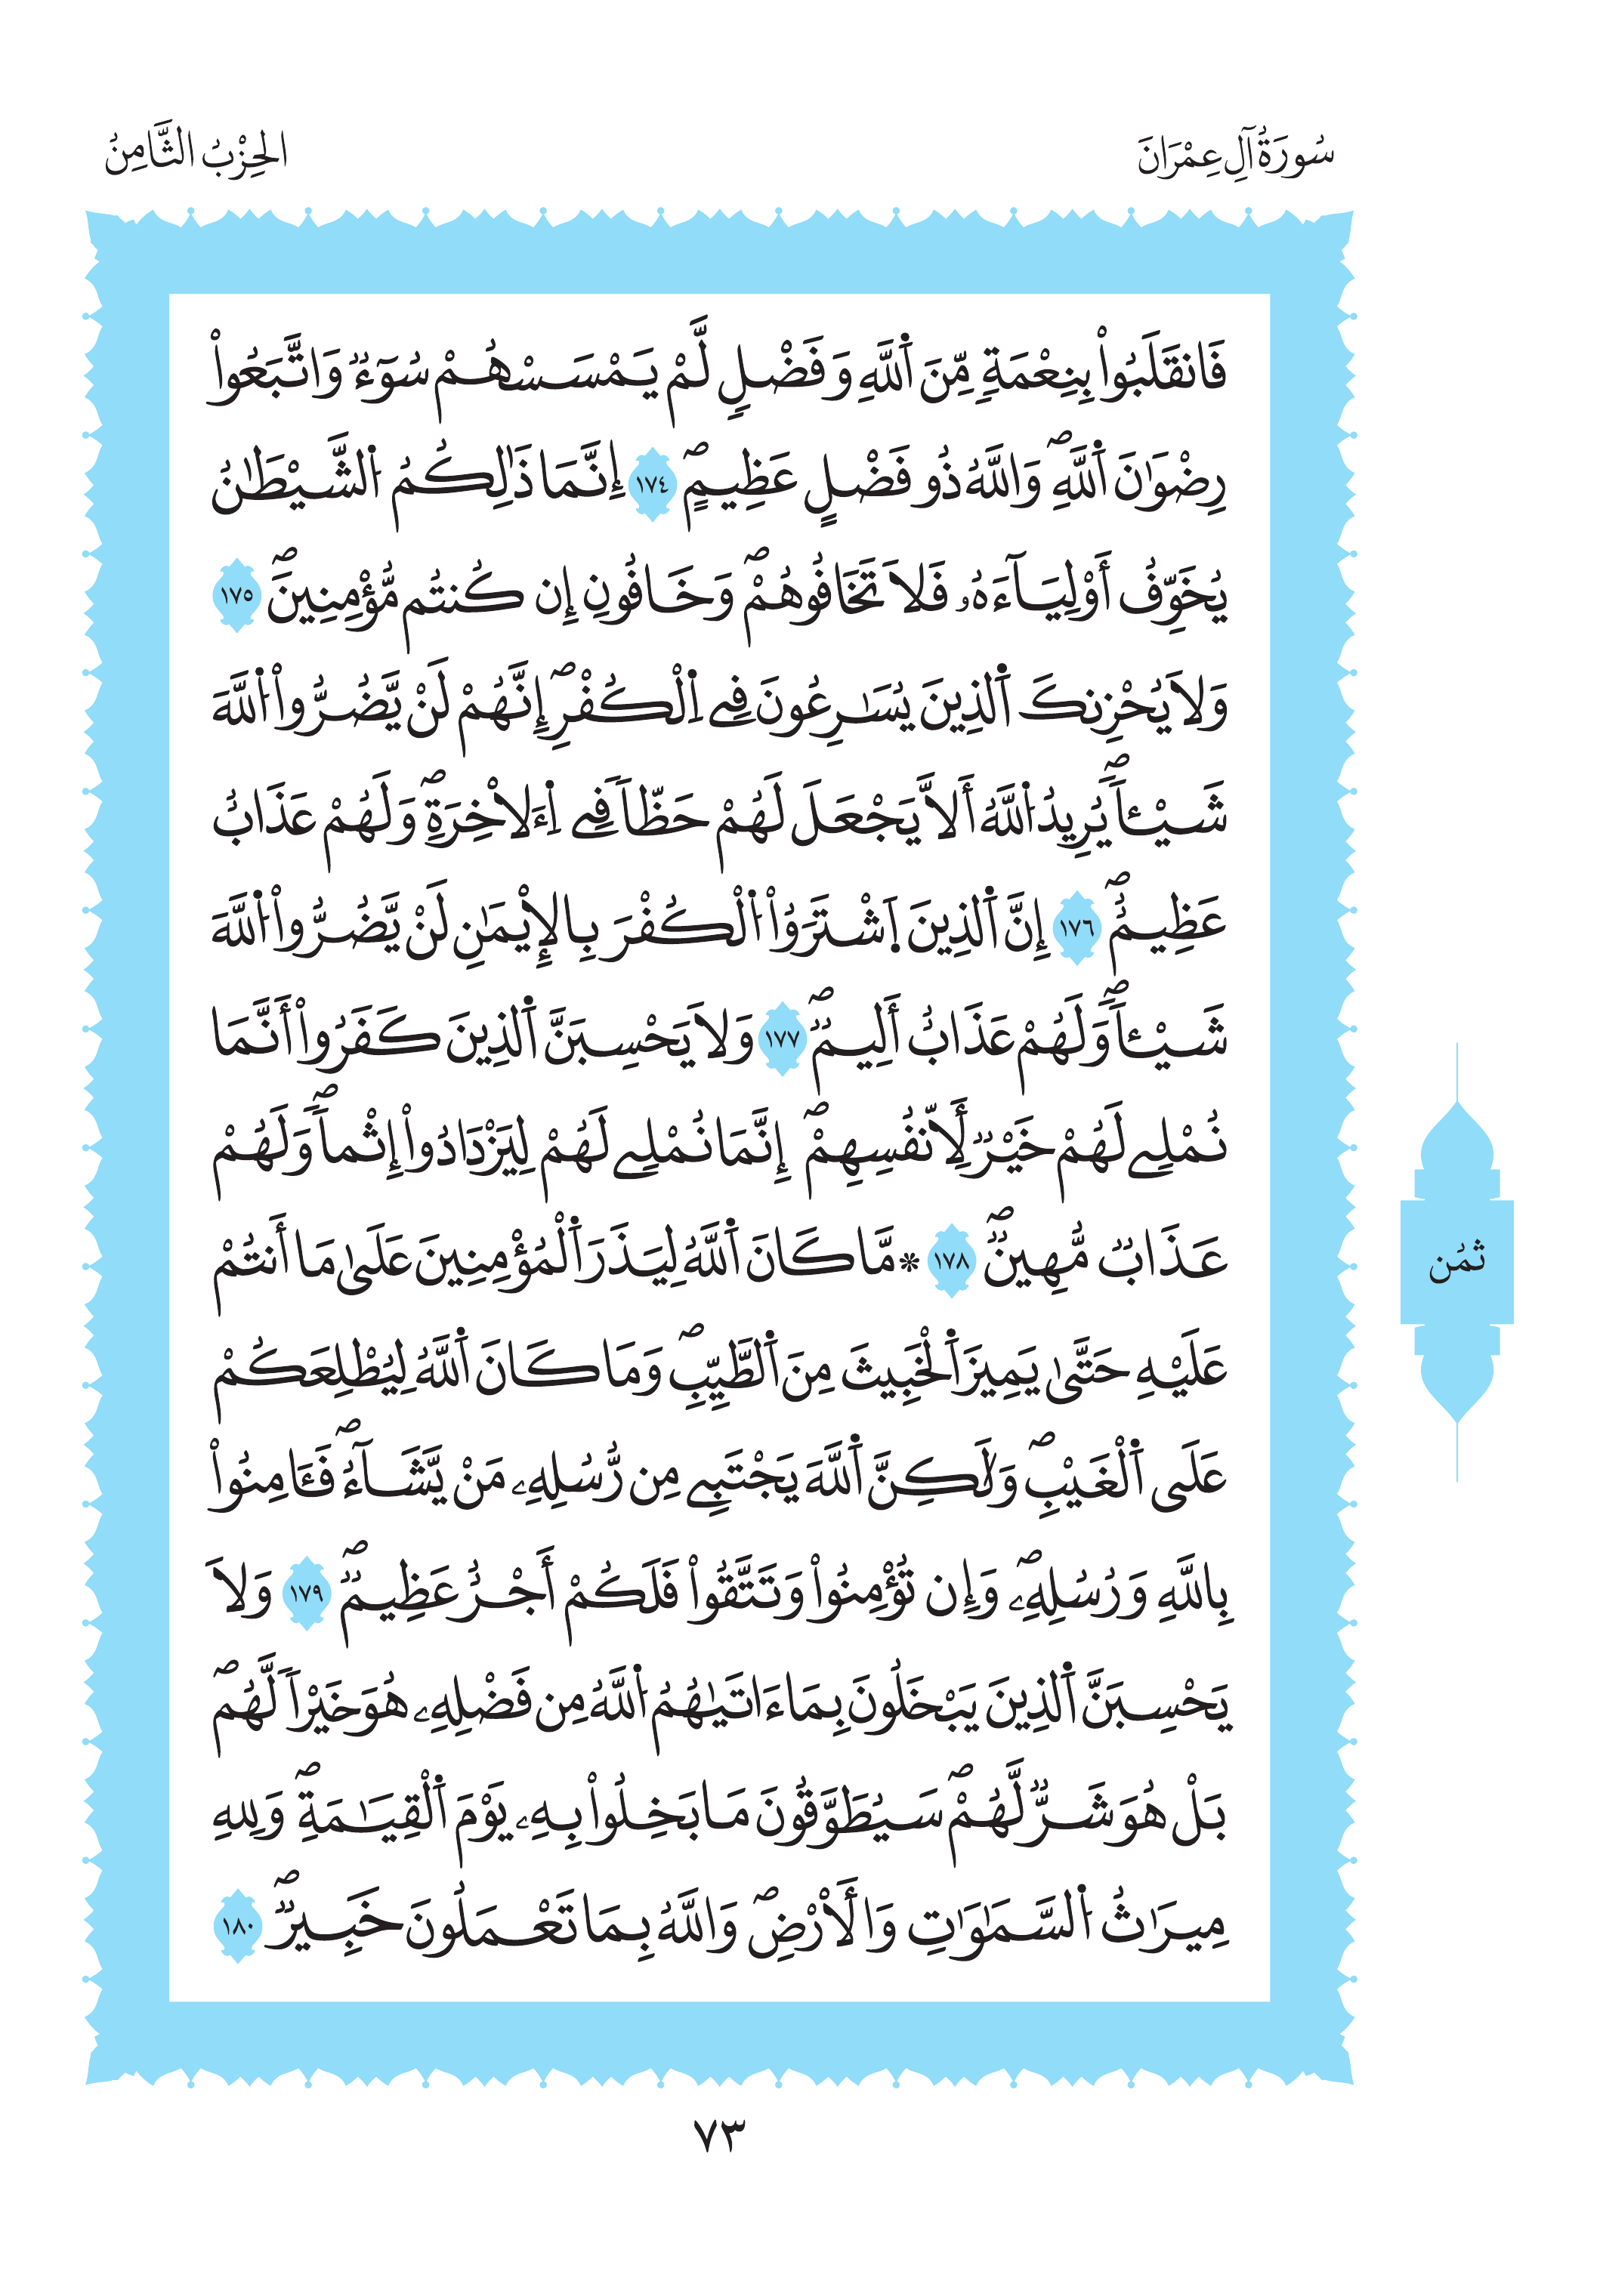 سُورَةُ آلِ عِمْرَانَ
الحِزْبُ الثَّامِنُ
فَانقَلَبُواْ بِنِعْمَةٖ مِّنَ اَ۬للَّهِ وَفَضْلٖ لَّمْ يَمْسَسْهُمْ سُوٓءٞ وَاتَّبَعُواْ
رِضْوَٰنَ اَ۬للَّهِۖ وَاللَّهُ ذُو فَضْلٍ عَظِيمٍۖ ١٧٤ إِنَّمَا ذَٰلِكُمُ اُ۬لشَّيْطَٰنُ
يُخَوِّفُ أَوْلِيَآءَهُۥ فَلَا تَخَافُوهُمْۖ وَخَافُونِ إِن كُنتُم مُّؤْمِنِينَۖ ١٧٥
وَلَا يُحْزِنكَ اَ۬لذِينَ يُسَٰرِعُونَ فِے اِ۬لْكُفْرِۖ إِنَّهُمْ لَنْ يَّضُرُّواْ اُ۬للَّهَ
شَيْـٔاٗۖ يُرِيدُ اُ۬للَّهُ أَلَّا يَجْعَلَ لَهُمْ حَظّاٗ فِے اِ۬ءَلَاخِرَةِۖ وَلَهُمْ عَذَابٌ
عَظِيمٌۖ ١٧٦ إِنَّ اَ۬لذِينَ اَ۪شْتَرَوُاْ اُ۬لْكُفْرَ بِالْإِيمَٰنِ لَنْ يَّضُرُّواْ اُ۬للَّهَ
شَيْـٔاٗۖ وَلَهُمْ عَذَابٌ أَلِيمٞۖ ١٧٧ وَلَا يَحْسِبَنَّ اَ۬لذِينَ كَفَرُواْ أَنَّمَا
نُمْلِے لَهُمْ خَيْرٞ لِّأَنفُسِهِمْۖ إِنَّمَا نُمْلِے لَهُمْ لِيَزْدَادُواْ إِثْماٗۖ وَلَهُمْ
عَذَابٞ مُّهِينٞۖ ١٧٨ * مَّا كَانَ اَ۬للَّهُ لِيَذَرَ اَ۬لْمُؤْمِنِينَ عَلَىٰ مَا أَنتُمْ
عَلَيْهِ حَتَّىٰ يَمِيزَ اَ۬لْخَبِيثَ مِنَ اَ۬لطَّيِّبِۖ وَمَا كَانَ اَ۬للَّهُ لِيُطْلِعَكُمْ
عَلَى اَ۬لْغَيْبِۖ وَلَٰكِنَّ اَ۬للَّهَ يَجْتَبِے مِن رُّسُلِهِۦ مَنْ يَّشَآءُۖ فَـَٔامِنُواْ
بِاللَّهِ وَرُسُلِهِۦۖ وَإِن تُؤْمِنُواْ وَتَتَّقُواْ فَلَكُمْ أَجْرٌ عَظِيمٞۖ ١٧٩ وَلَا
يَحْسِبَنَّ اَ۬لذِينَ يَبْخَلُونَ بِمَا ءَاتَيٰهُمُ اُ۬للَّهُ مِن فَضْلِهِۦ هُوَ خَيْراٗ لَّهُمۖ
بَلْ هُوَ شَرّٞ لَّهُمْۖ سَيُطَوَّقُونَ مَا بَخِلُواْ بِهِۦ يَوْمَ اَ۬لْقِيَٰمَةِۖ وَلِلهِ
مِيرَٰثُ اُ۬لسَّمَٰوَٰتِ وَالْأَرْضِۖ وَاللَّهُ بِمَا تَعْمَلُونَ خَبِيرٞۖ ١٨٠
ثمُن
٧٣